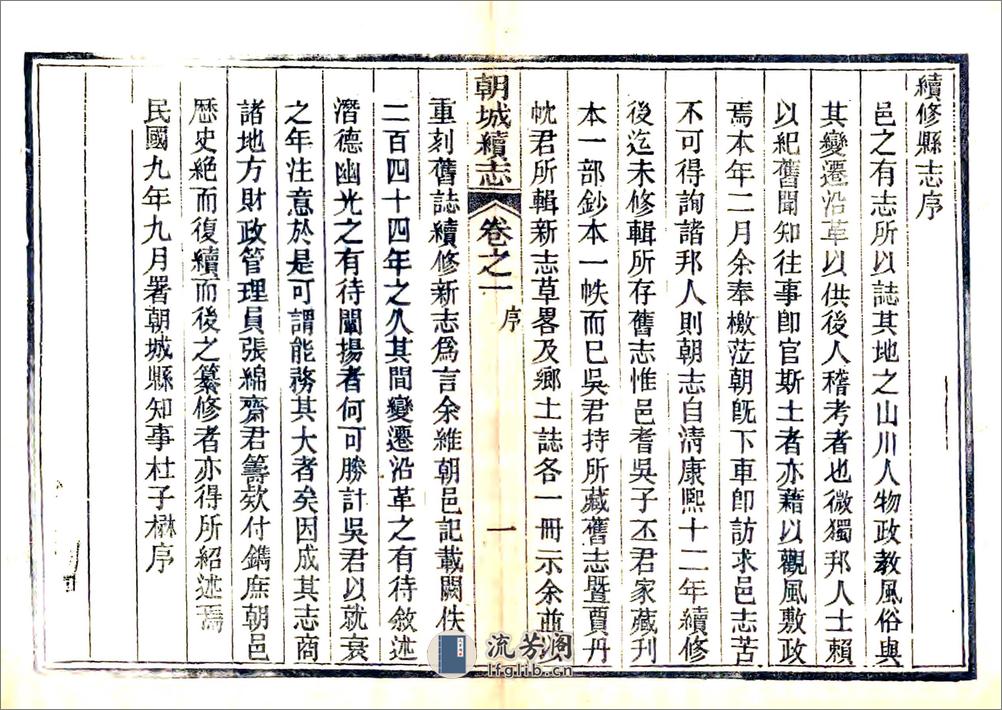 續修縣志序
邑之有志所以誌其地之山川人物政教風俗與
其變遷沿革以供後人稽考者也微獨邦人士賴
以紀舊聞知往事卽官斯土者亦藉以觀風敷政
焉本年二月余奉檄蒞朝旣下車卽訪求邑志苦
不可得詢諸邦人則朝志自清康熙十二年續修
後迄未修輯所存舊志惟邑耆吳子丕君家藏刊
本一部鈔本一帙而已吳君持所藏舊志暨賈丹
忱君所輯新志草畧及鄉土誌各一冊示余並
朝城續志
卷之一
序
一
重刻舊誌續修新志爲言余維朝邑記載闕佚
二百四十四年之久其間變遷沿革之有待敘述
潛德幽光之有待闡揚者何可勝計吳君以就衰
之年注意於是可謂能務其大者矣因成其志商
諸地方財政管理員張綿齋君籌欵付鐫庶朝邑
歷史絕而復續而後之纂修者亦得所紹述焉
民國九年九月署朝城縣知事杜子楙序
流芳阁
lfglib.cn